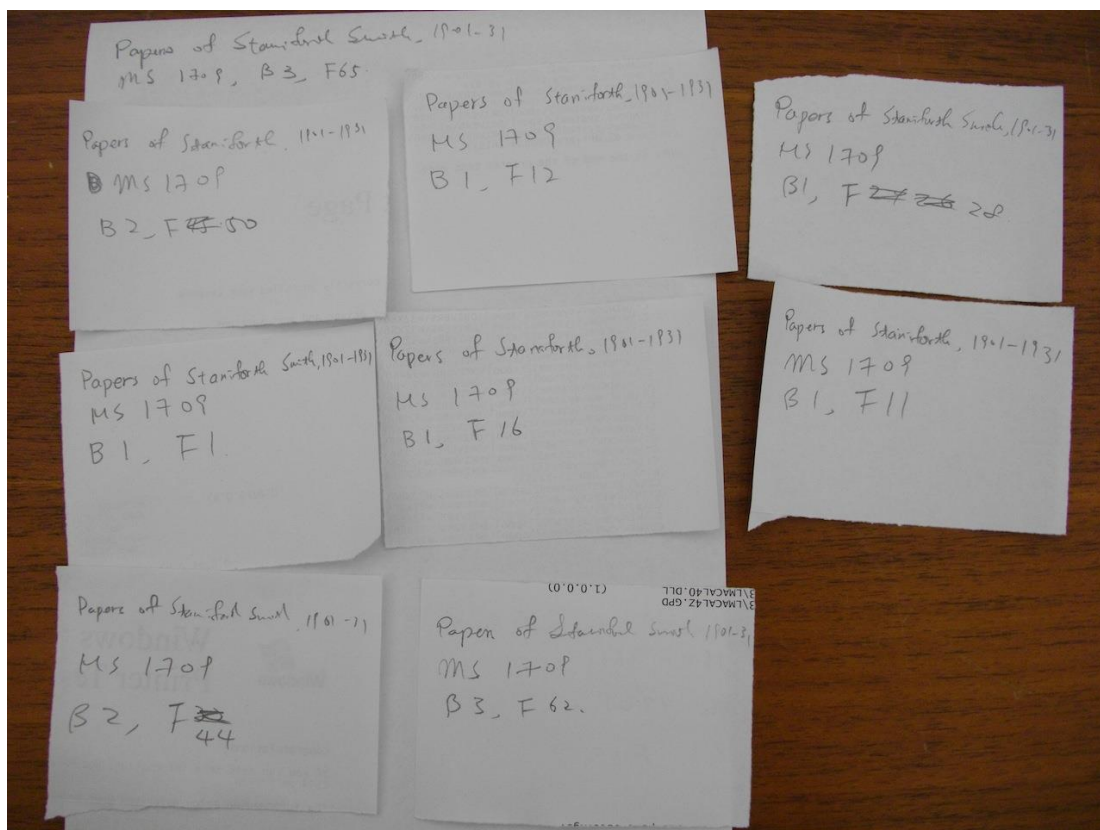 Papers of Staniforth Smith, 1901-31
MS 1709, B3, F65.
Papers of Staniforth, 1901-1931
MS 1709
B2, F 50
Papers of Staniforth, 1901-1931
MS 1709
B1, F12
Papers of Staniforth Smith, 1901-31
MS 1709
B1, F 27 26 28
Papers of Staniforth Smith, 1901-1931
MS 1709
B1, F1.
Papers of Staniforth, 1901-1931
MS 1709
B1, F16
Papers of Staniforth, 1901-1931
MS 1709
B1, F11
Papers of Staniforth Smith, 1901-31
MS 1709
B2, F
44
3\LMACAL40.DLL (1.0.0.0)
3\LMACAL4Z.GPD
Papers of Staniforth Smith 1901-31
MS 1709
B3, F62.
Page
Windows
Printer